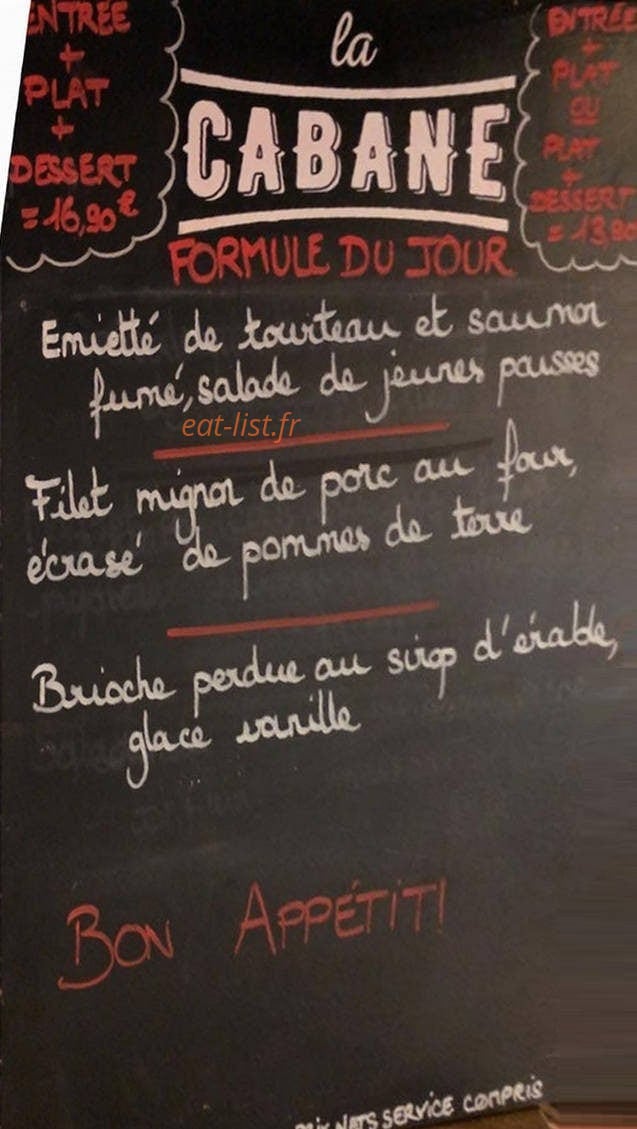 ENTRÉE
+
PLAT
+
DESSERT
= 16,90€
la
CABANE
ENTRÉE
+
PLAT
OU
PLAT
+
DESSERT
= 13,90
FORMULE DU JOUR
Emietté de tourteau et saumon
fumé, salade de jeunes pousses
eat-list.fr
Filet mignon de porc au four,
écrasé de pommes de terre
Brioche perdue au sirop d'érable,
glace vanille
BON APPÉTIT!
PRIX NETS SERVICE COMPRIS